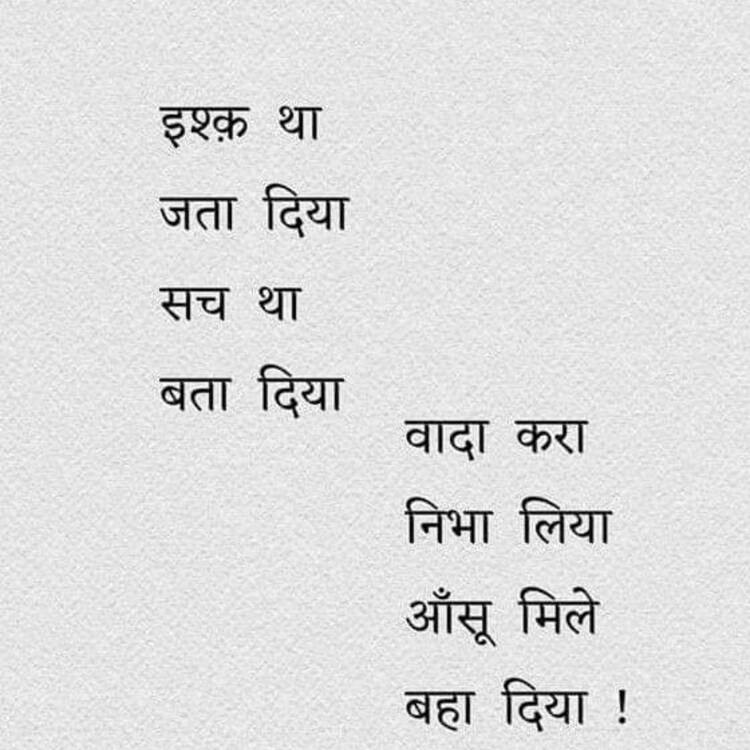 इश्क़ था
जता दिया
सच था
बता दिया
वादा करा
निभा लिया
आँसू मिले
बहा दिया !